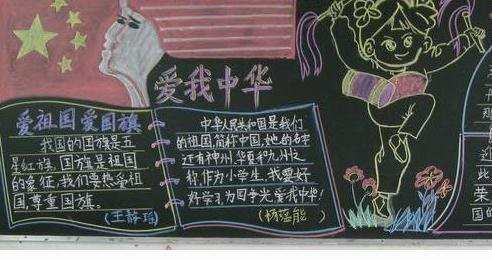 爱我中华
爱祖国爱国旗
我国的国旗是五
星红旗,国旗是祖国
的象征,我们要热爱祖
国尊重国旗。
中华人民共和国是我们
的祖国,简称中国,她的名字
还有神州,华夏和九州之
称,作为小学生,我要好
好学习为国争光爱我中华!
比
荣
国的